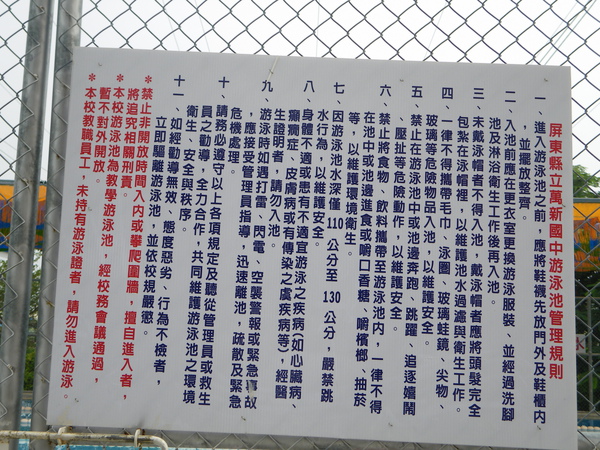 屏東縣立萬新國中游泳池管理規則
一、進入游泳池之前，應將鞋襪先放門外及鞋櫃內
，並擺放整齊。
二、入池前應在更衣室更換游泳服裝、並經過洗腳
池及淋浴衛生工作後再入池。
三、未戴泳帽者不得入池，戴泳帽者應將頭髮完全
包紮在泳帽裡，以維護池水過濾與衛生工作。
四、一律不得攜帶毛巾、泳圈、玻璃蛙鏡、尖物、
玻璃等危險物品入池，以維護安全。
五、禁止在游泳池中或池邊奔跑、跳躍、追逐嬉鬧
、壓扯等危險動作，以維護安全。
六、禁止將食物、飲料攜帶至游泳池內，一律不得
在池中或池邊進食或嚼口香糖、嚼檳榔、抽菸
等，以維護環境衛生。
七、因游泳池水深僅 110 公分至 130 公分，嚴禁跳
水行為，以維護安全。
八、身體不適或患有不適宜游泳之疾病(如心臟病、
癲癇症、皮膚病或有傳染之虞疾病等)，經醫
生證明者，請勿入池。
九、游泳時如遇打雷、閃電、空襲警報或緊急事故
，應接受管理員指導，迅速離池，疏散及緊急
危機處理。
十、請務必遵守以上各項規定及聽從管理員或救生
員之勸導，全力合作，共同維護游泳池之環境
衛生、安全與秩序。
十一、如經勸導無效、態度惡劣、行為不檢者，
立即驅離游泳池，並依校規嚴懲。
*禁止非開放時間入內或攀爬圍牆，擅自進入者，
將追究相關刑責。
*本校游泳池為教學游泳池，經校務會議通過，
暫不對外開放。
*本校教職員工，未持有游泳證者，請勿進入游泳。